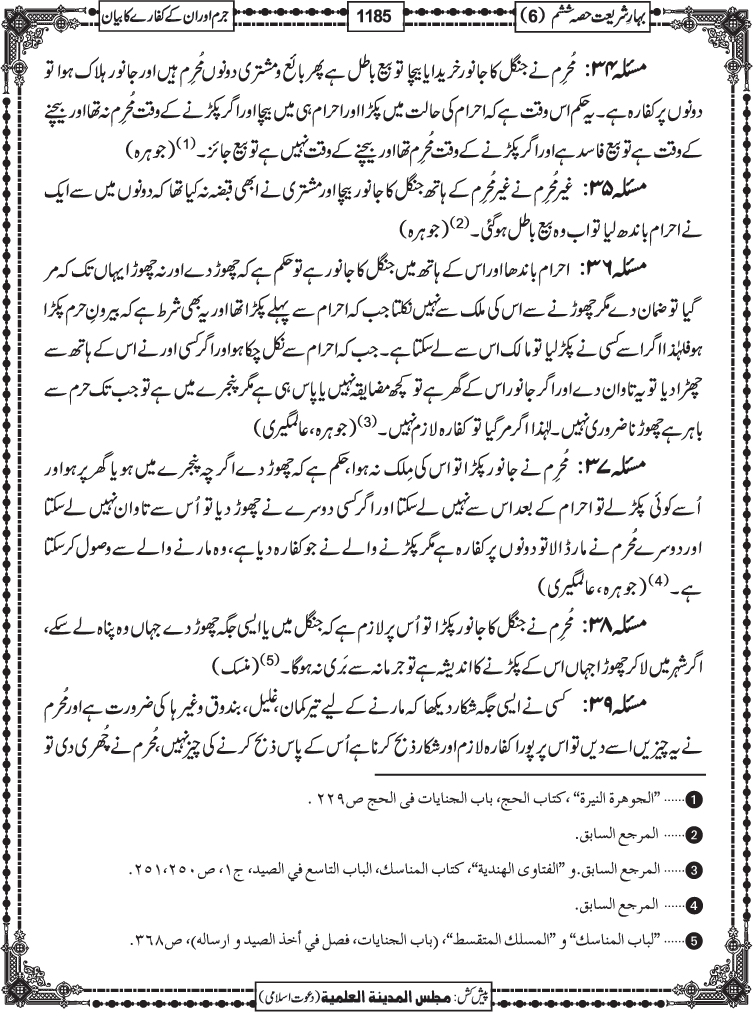 بہارِ شریعت حصہ ششم (6)
1185
جرم اور ان کے کفارے کا بیان
مسئلہ ۳۴: مُحرِم نے جنگل کا جانور خریدا یا بیچا تو بیع باطل ہے پھر بائع و مشتری دونوں مُحرِم ہیں اور جانور ہلاک ہوا تو
دونوں پر کفارہ ہے۔ یہ حکم اس وقت ہے کہ احرام کی حالت میں پکڑا اور احرام ہی میں بیچا اور اگر پکڑنے کے وقت مُحرِم نہ تھا اور بیچنے
کے وقت ہے تو بیع فاسد ہے اور اگر پکڑنے کے وقت مُحرِم تھا اور بیچنے کے وقت نہیں ہے تو بیع جائز۔ (1) (جوہرہ)
مسئلہ ۳۵: غیر مُحرِم نے غیر مُحرِم کے ہاتھ جنگل کا جانور بیچا اور مشتری نے ابھی قبضہ نہ کیا تھا کہ دونوں میں سے ایک
نے احرام باندھ لیا تو اب وہ بیع باطل ہوگئی۔ (2) (جوہرہ)
مسئلہ ۳۶: احرام باندھا اور اس کے ہاتھ میں جنگل کا جانور ہے تو حکم ہے کہ چھوڑ دے اور نہ چھوڑا یہاں تک کہ مر
گیا تو ضمان دے مگر چھوڑنے سے اس کی ملک سے نہیں نکلتا جب کہ احرام سے پہلے پکڑا تھا اور یہ بھی شرط ہے کہ بیرونِ حرم پکڑا
ہو فلہٰذا اگر اسے کسی نے پکڑ لیا تو مالک اس سے لے سکتا ہے۔ جب کہ احرام سے نکل چکا ہو اور اگر کسی اور نے اس کے ہاتھ سے
چھڑا دیا تو یہ تاوان دے اور اگر جانور اس کے گھر ہے تو کچھ مضایقہ نہیں یا پاس ہی ہے مگر پنجرے میں ہے تو جب تک حرم سے
باہر ہے چھوڑنا ضروری نہیں۔ لہٰذا اگر مر گیا تو کفارہ لازم نہیں۔ (3) (جوہرہ، عالمگیری)
مسئلہ ۳۷: مُحرِم نے جانور پکڑا تو اس کی مِلک نہ ہوا، حکم ہے کہ چھوڑ دے اگرچہ پنجرے میں ہو یا گھر پر ہو اور
اُسے کوئی پکڑ لے تو احرام کے بعد اس سے نہیں لے سکتا اور اگر کسی دوسرے نے چھوڑ دیا تو اُس سے تاوان نہیں لے سکتا
اور دوسرے مُحرِم نے مار ڈالا تو دونوں پر کفارہ ہے مگر پکڑنے والے نے جو کفارہ دیا ہے، وہ مارنے والے سے وصول کرسکتا
ہے۔ (4) (جوہرہ، عالمگیری)
مسئلہ ۳۸: مُحرِم نے جنگل کا جانور پکڑا تو اُس پر لازم ہے کہ جنگل میں یا ایسی جگہ چھوڑ دے جہاں وہ پناہ لے سکے،
اگر شہر میں لا کر چھوڑا جہاں اس کے پکڑنے کا اندیشہ ہے تو جرمانہ سے بَری نہ ہوگا۔ (5) (منسک)
مسئلہ ۳۹: کسی نے ایسی جگہ شکار دیکھا کہ مارنے کے لیے تیر کمان، غلیل، بندوق وغیرہا کی ضرورت ہے اور مُحرِم
نے یہ چیزیں اسے دیں تو اس پر پورا کفارہ لازم اور شکار ذبح کرنا ہے اُس کے پاس ذبح کرنے کی چیز نہیں، مُحرِم نے چُھری دی تو
1 ...... "الجوهرة النيرة"، كتاب الحج، باب الجنايات فى الحج ص۲۲۹ .
2 ...... المرجع السابق.
3 ...... المرجع السابق. و "الفتاوى الهندية"، كتاب المناسك، الباب التاسع في الصيد، ج۱، ص۲۵۰،۲۵۱.
4 ...... المرجع السابق.
5 ...... "لباب المناسك" و "المسلك المتقسط"، (باب الجنايات، فصل في أخذ الصيد و ارساله)، ص۳۶۸.
پیش کش: مجلس المدينة العلمية (دعوتِ اسلامی)